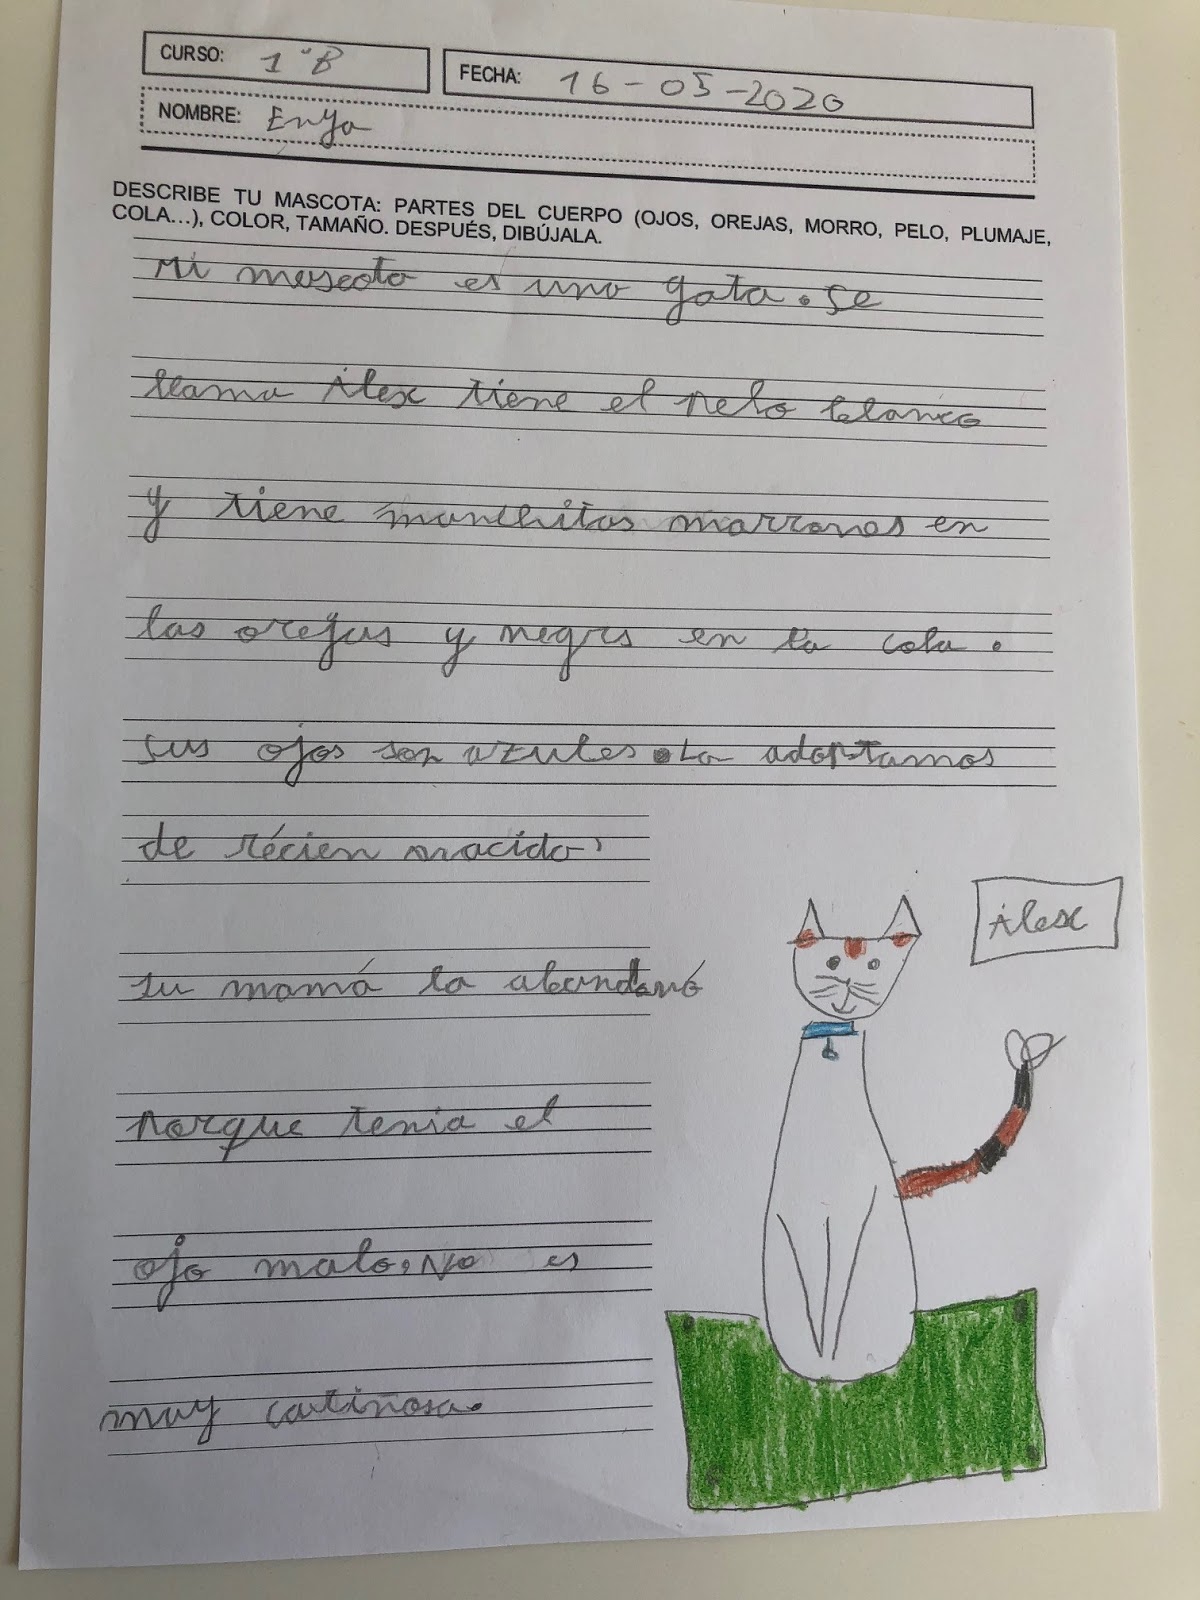 CURSO: 1º B
FECHA: 16-05-2020
NOMBRE: Enya
DESCRIBE TU MASCOTA: PARTES DEL CUERPO (OJOS, OREJAS, MORRO, PELO, PLUMAJE,
COLA...), COLOR, TAMAÑO. DESPUÉS, DIBÚJALA.
Mi mascota es una gata. se
llama Álex tiene el pelo blanco
y tiene manchitas marrones en
las orejas y negrs en la cola.
sus ojos son azules. La adoptamos
de récien nacido,
su mamá la abandonó
porque tenia el
ojo malo, No es
muy cariñosa.
Álex